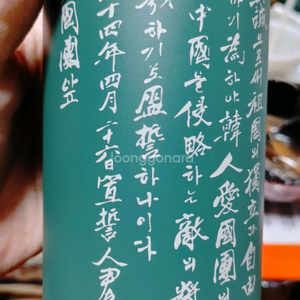 誠으로써 祖國의 獨立과 自由
하기 爲하야 韓人愛國團의
中國을 侵略하는 敵의 將
하기로 盟誓하나이다
十四年四月二十六日 宣誓人 尹
國團앞
joonggonara